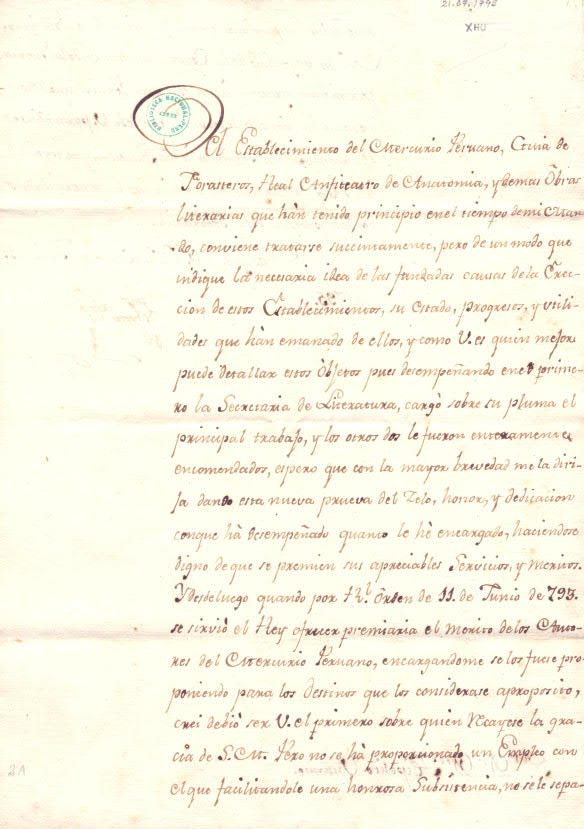 21.07.1796
XHU
BIBLIOTECA NACIONAL PERU
El Establecimiento del Mercurio Peruano, Guia de
Forasteros, Real Anfiteatro de Anatomia, y demas Òbras
literarias que hàn tenido principio en el tiempo de mi Man-
do, conviene tratarse succintamente, pero de un modo que
indique la necesaria idea de las fundadas causas de la Erec-
cion de estos Establecimientos, su estado, progresos, y utili-
dades que hàn emanado de ellos, y como V. es quien mejor
puede detallar estos Òbjetos pues desempeñando en el prime-
ro la Secretaria de Literatura, cargò sobre su pluma el
principal trabajo, y los otros dos le fueron enteramente
encomendados, espero que con la mayor brevedad me la diri-
ja dando esta nueva prueva del Zelo, honor, y dedicacion
conque hà desempeñado quanto le hè encargado, haciendose
digno de que se premien sus apreciables Servicios, y meritos.
Y desde luego quando por Rl. Òrden de 11. de Junio de 793.
se sirviò el Rey ofrecer premiaria el merito de los Auto-
res del Mercurio Peruano, encargandome se los fuese pro-
poniendo para los destinos que los considerase aproposito,
crei debiò ser V. el primero sobre quien recayese la gra-
cia de S.M. Pero no se hà proporcionado un Empleo con
el que facilitandole una honrosa Subsistencia, no se le sepa-
2A